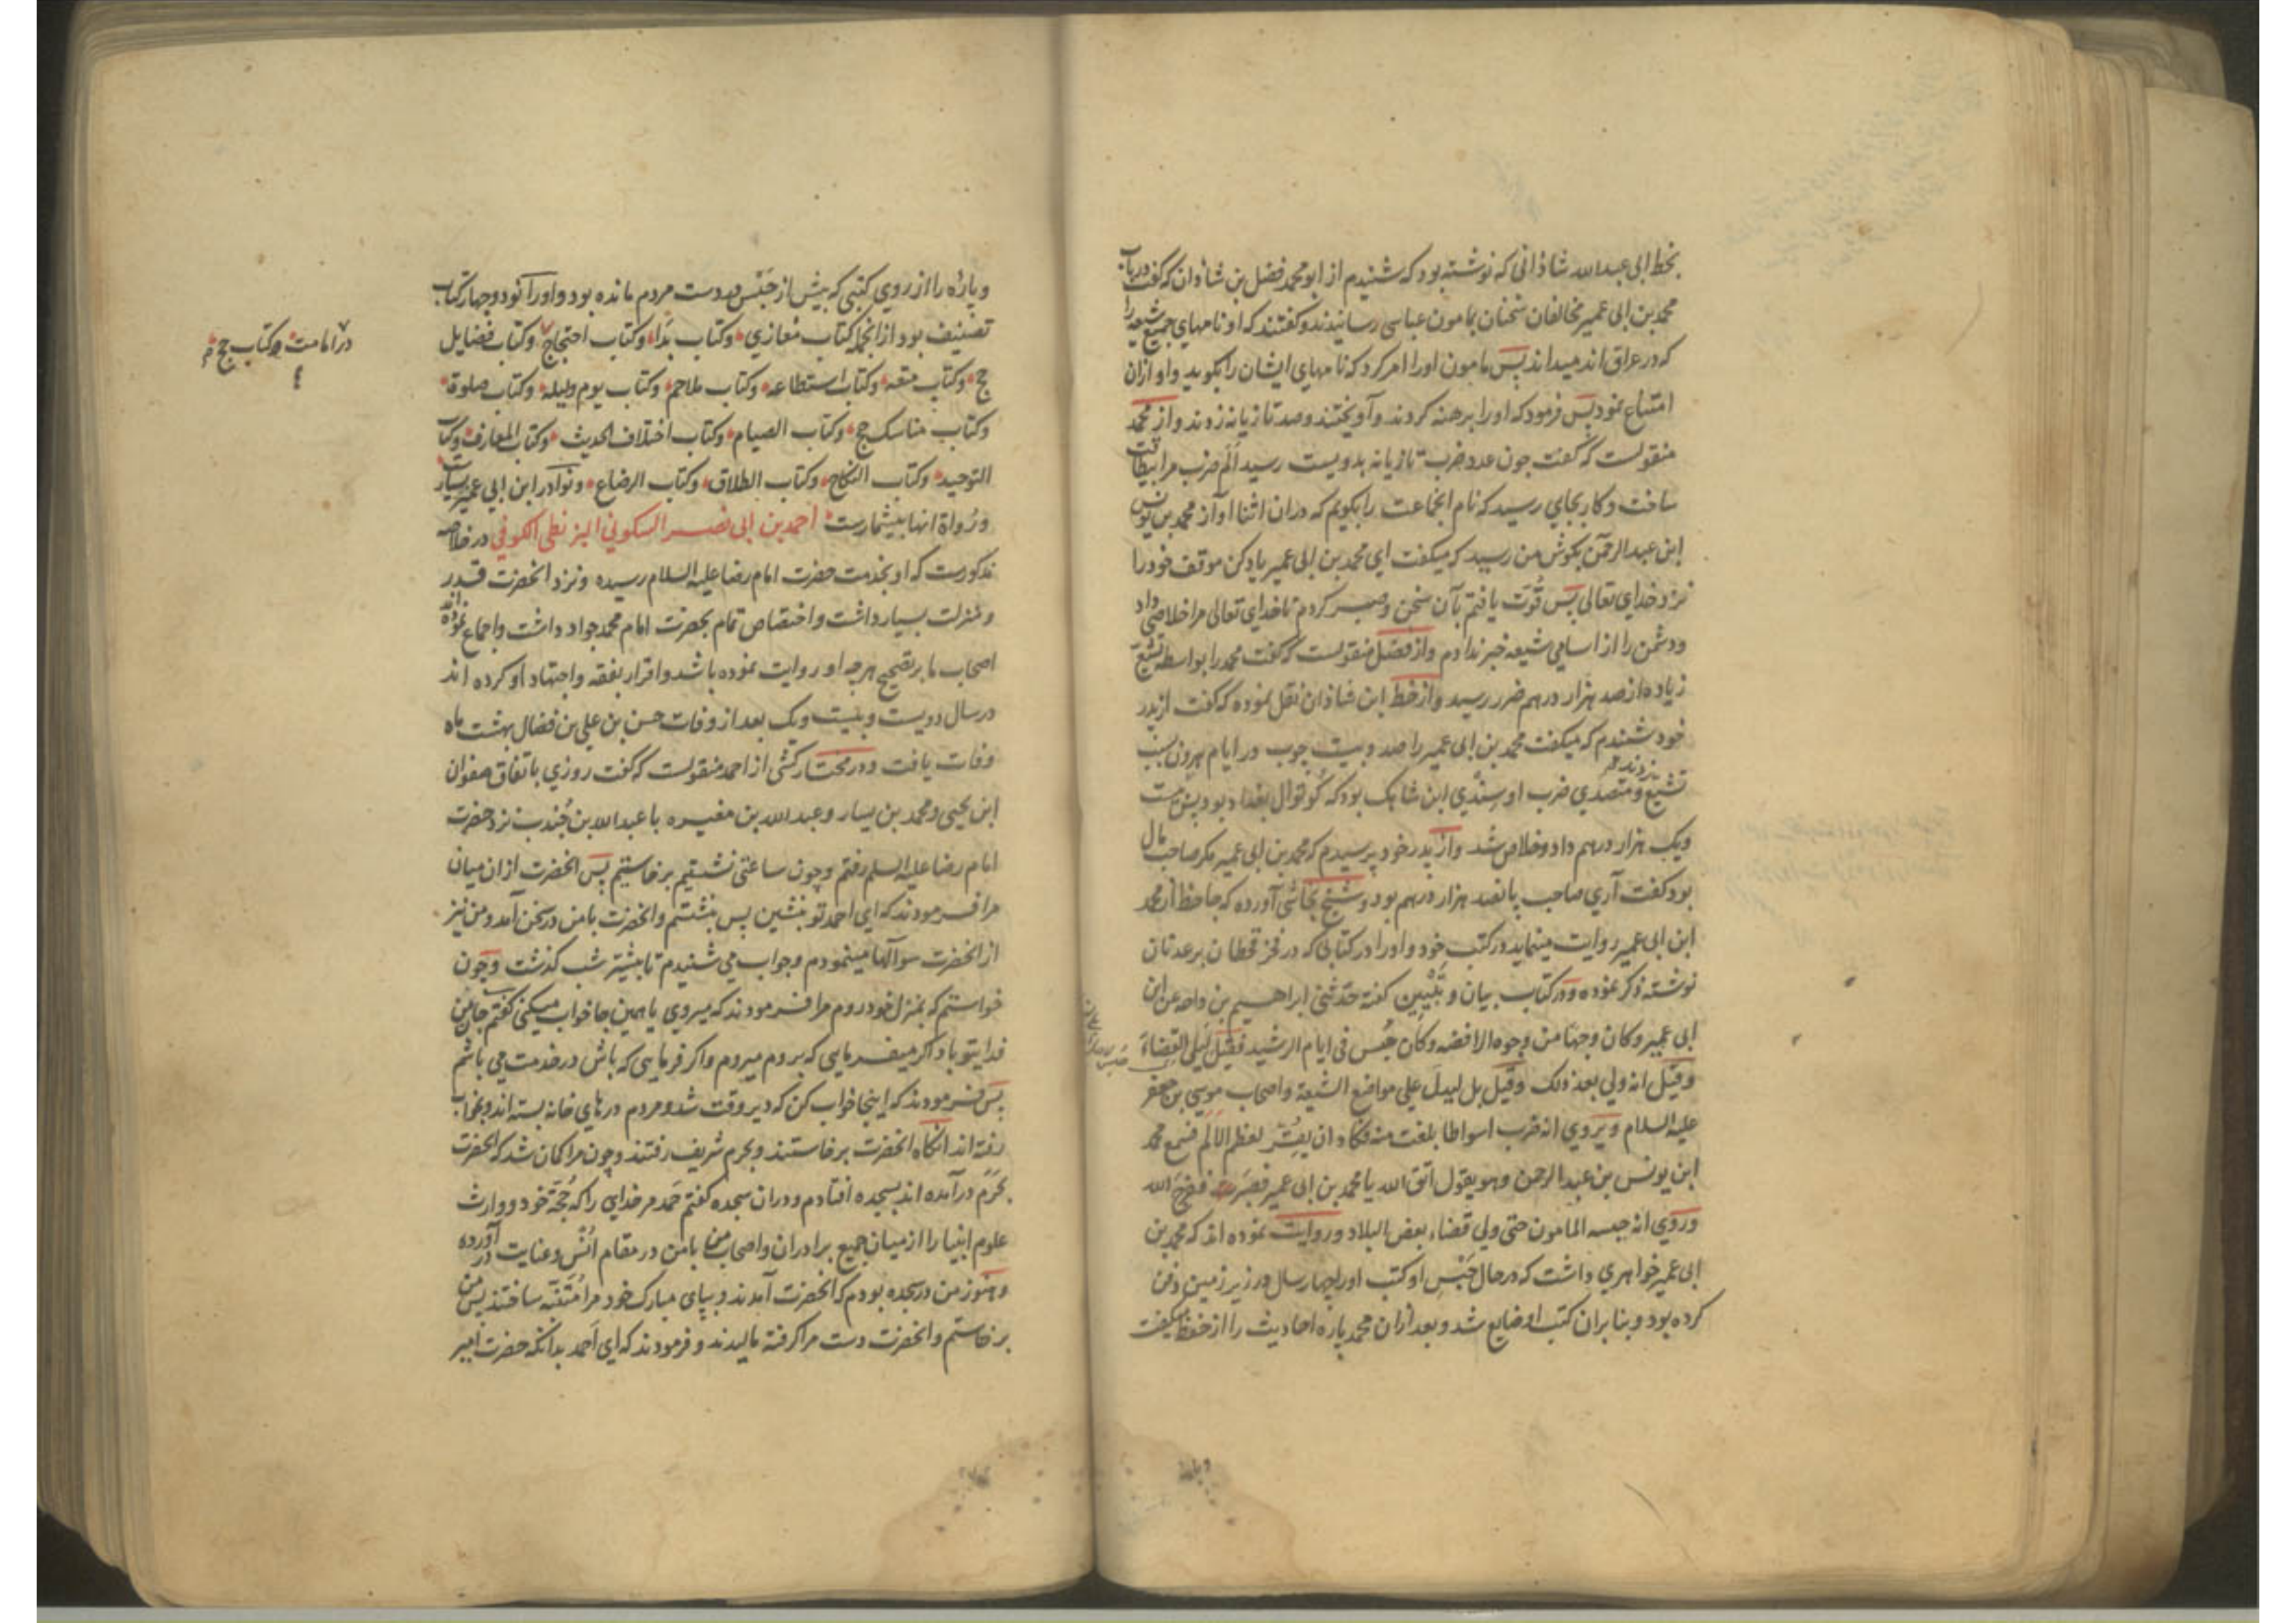 بخط ابی عبدالله شاذانی که نوشته بود که شنیدم از ابو محمد فضل بن شاذان که گفت در باب
محمد بن ابی عمیر مخالفان سخنان بمامون عباسی رسانیدند و گفتند که او نامهای جمیع شیعه را
که در عراق اند میداند پس مامون او را امر کرد که نامهای ایشان را بگوید و او ازان
امتناع نمود پس فرمود که او را برهنه کردند و آویختند و صد تازیانه زدند و از محمد
منقولست که گفت چون عدد ضرب تازیانه بدویست رسید الم ضرب مرا بیطاقت
ساخت و کار بجای رسید که نام انجماعت را بگویم که دران اثنا آواز محمد بن یونس
ابن عبد الرحمن بگوش من رسید که میگفت ای محمد بن ابی عمیر یاد کن موقف خود را
نزد خدای تعالی پس قوت یافتم بآن سخن و صبر کردم تا خدای تعالی مرا خلاصی داد
و دشمن را از اسامی شیعه خبر ندادم و از فضل منقولست که گفت محمد را بواسطه تشیع
زیاده از صد هزار درهم ضرر رسید و از خط ابن شاذان نقل نموده که گفت از پدر
خود شنیدم که میگفت محمد بن ابی عمیر را صد و بیست چوب در ایام هرون بسبب
تشیع زدند و متصدی ضرب او سندی ابن شاهک بود که کوتوال بغداد بود پس بیست
و یک هزار درهم داد و خلاص شد و از پدر خود پرسیدم که محمد بن ابی عمیر مکر صاحب مال
بود گفت آری صاحب پانصد هزار درهم بود و شیخ نجاشی آورده که جاحظ از محمد
ابن ابی عمیر روایت مینماید در کتب خود و او را در کتابی که در فخر قحطان بر عدنان
نوشته ذکر نموده و در کتاب بیان و تبیین گفته حدثنی ابراهیم بن داحه عن ابن
ابی عمیر و کان وجها من وجوه الرافضه و کان حبس فی ایام الرشید فقیل لیلی القضاء
و قیل انه ولی بعد ذلک و قیل بل لیدل علی مواضع الشیعة و اصحاب موسی بن جعفر
علیه السلام و یروی انه ضرب اسواطا بلغت منه فکاد ان یقر لعظم الالم فسمع محمد
ابن یونس بن عبد الرحمن و هو یقول اتق الله یا محمد بن ابی عمیر فصبرت ففرج الله
و روی انه حبسه المامون حتی ولی قضاء بعض البلاد و روایت نموده اند که محمد بن
ابی عمیر خواهری داشت که در حال حبس او کتب او را چهار سال در زیر زمین دفن
کرده بود و بنا بران کتب او ضایع شد و بعد ازان محمد پاره احادیث را از حفظ میگفت
و پاره را از روی کتبی که پیش از حبس در دست مردم مانده بود و او را نود و چهار کتاب
تصنیف بود از انجمله کتاب مغازی و کتاب بدا و کتاب احتجاج و کتاب فضایل
در امامت و کتاب حج
حج و کتاب متعه و کتاب استطاعه و کتاب ملاحم و کتاب یوم و لیله و کتاب صلوة
و کتاب مناسک حج و کتاب الصیام و کتاب اختلاف الحدیث و کتاب المعارف و کتاب
التوحید و کتاب النکاح و کتاب الطلاق و کتاب الرضاع و نوادر ابن ابی عمیر بسیار است
و رواة انها بیشمارست احمد بن ابی نصر السکونی البزنطی الکوفی در خلاصه
مذکورست که او بخدمت حضرت امام رضا علیه السلام رسیده و نزد انحضرت قدر
و منزلت بسیار داشت و اختصاص تمام بحضرت امام محمد جواد داشت و اجماع نموده اند
اصحاب ما بر تصحیح هر چه او روایت نموده باشد و اقرار بفقه و اجتهاد او کرده اند
در سال دویست و بیست و یک بعد از وفات حسن بن علی بن فضال بهشت ماه
وفات یافت و در مختار کشی از احمد منقولست که گفت روزی باتفاق صفوان
ابن یحیی و محمد بن یسار و عبد الله بن مغیره با عبد الله بن جندب نزد حضرت
امام رضا علیه السلم رفتم و چون ساعتی نشستیم برخاستیم پس انحضرت از ان میان
مرا فرمودند که ای احمد تو بنشین پس بنشستم و انحضرت با من در سخن آمد و من نیز
از انحضرت سوالها مینمودم و جواب می شنیدم تا بیشتر شب کذشت و چون
خواستم که بمنزل خود روم مرا فرمودند که میروی یا همین جا خواب میکنی گفتم جان من
فدای تو باد اکر میفرمایی که بروم میروم و اکر فرمایی که باش در خدمت می باشم
پس فرمودند که اینجا خواب کن که دیر وقت شد و مردم درهای خانه بسته اند و بخواب
رفته اند انکاه انحضرت برخاستند و بحرم شریف رفتند و چون مرا کمان شد که انحضرت
بحرم درآمده اند بسجده افتادم و دران سجده گفتم حمد مر خدای را که حجة خود و وارث
علوم انبیا را از میان جمیع برادران و اصحاب من با من در مقام انس و عنایت درآورده
و هنوز من در سجده بودم که انحضرت آمدند و بپای مبارک خود مرا متنبه ساختند پس من
برخاستم و انحضرت دست مرا کرفته مالیدند و فرمودند که ای احمد بدانکه حضرت امیر